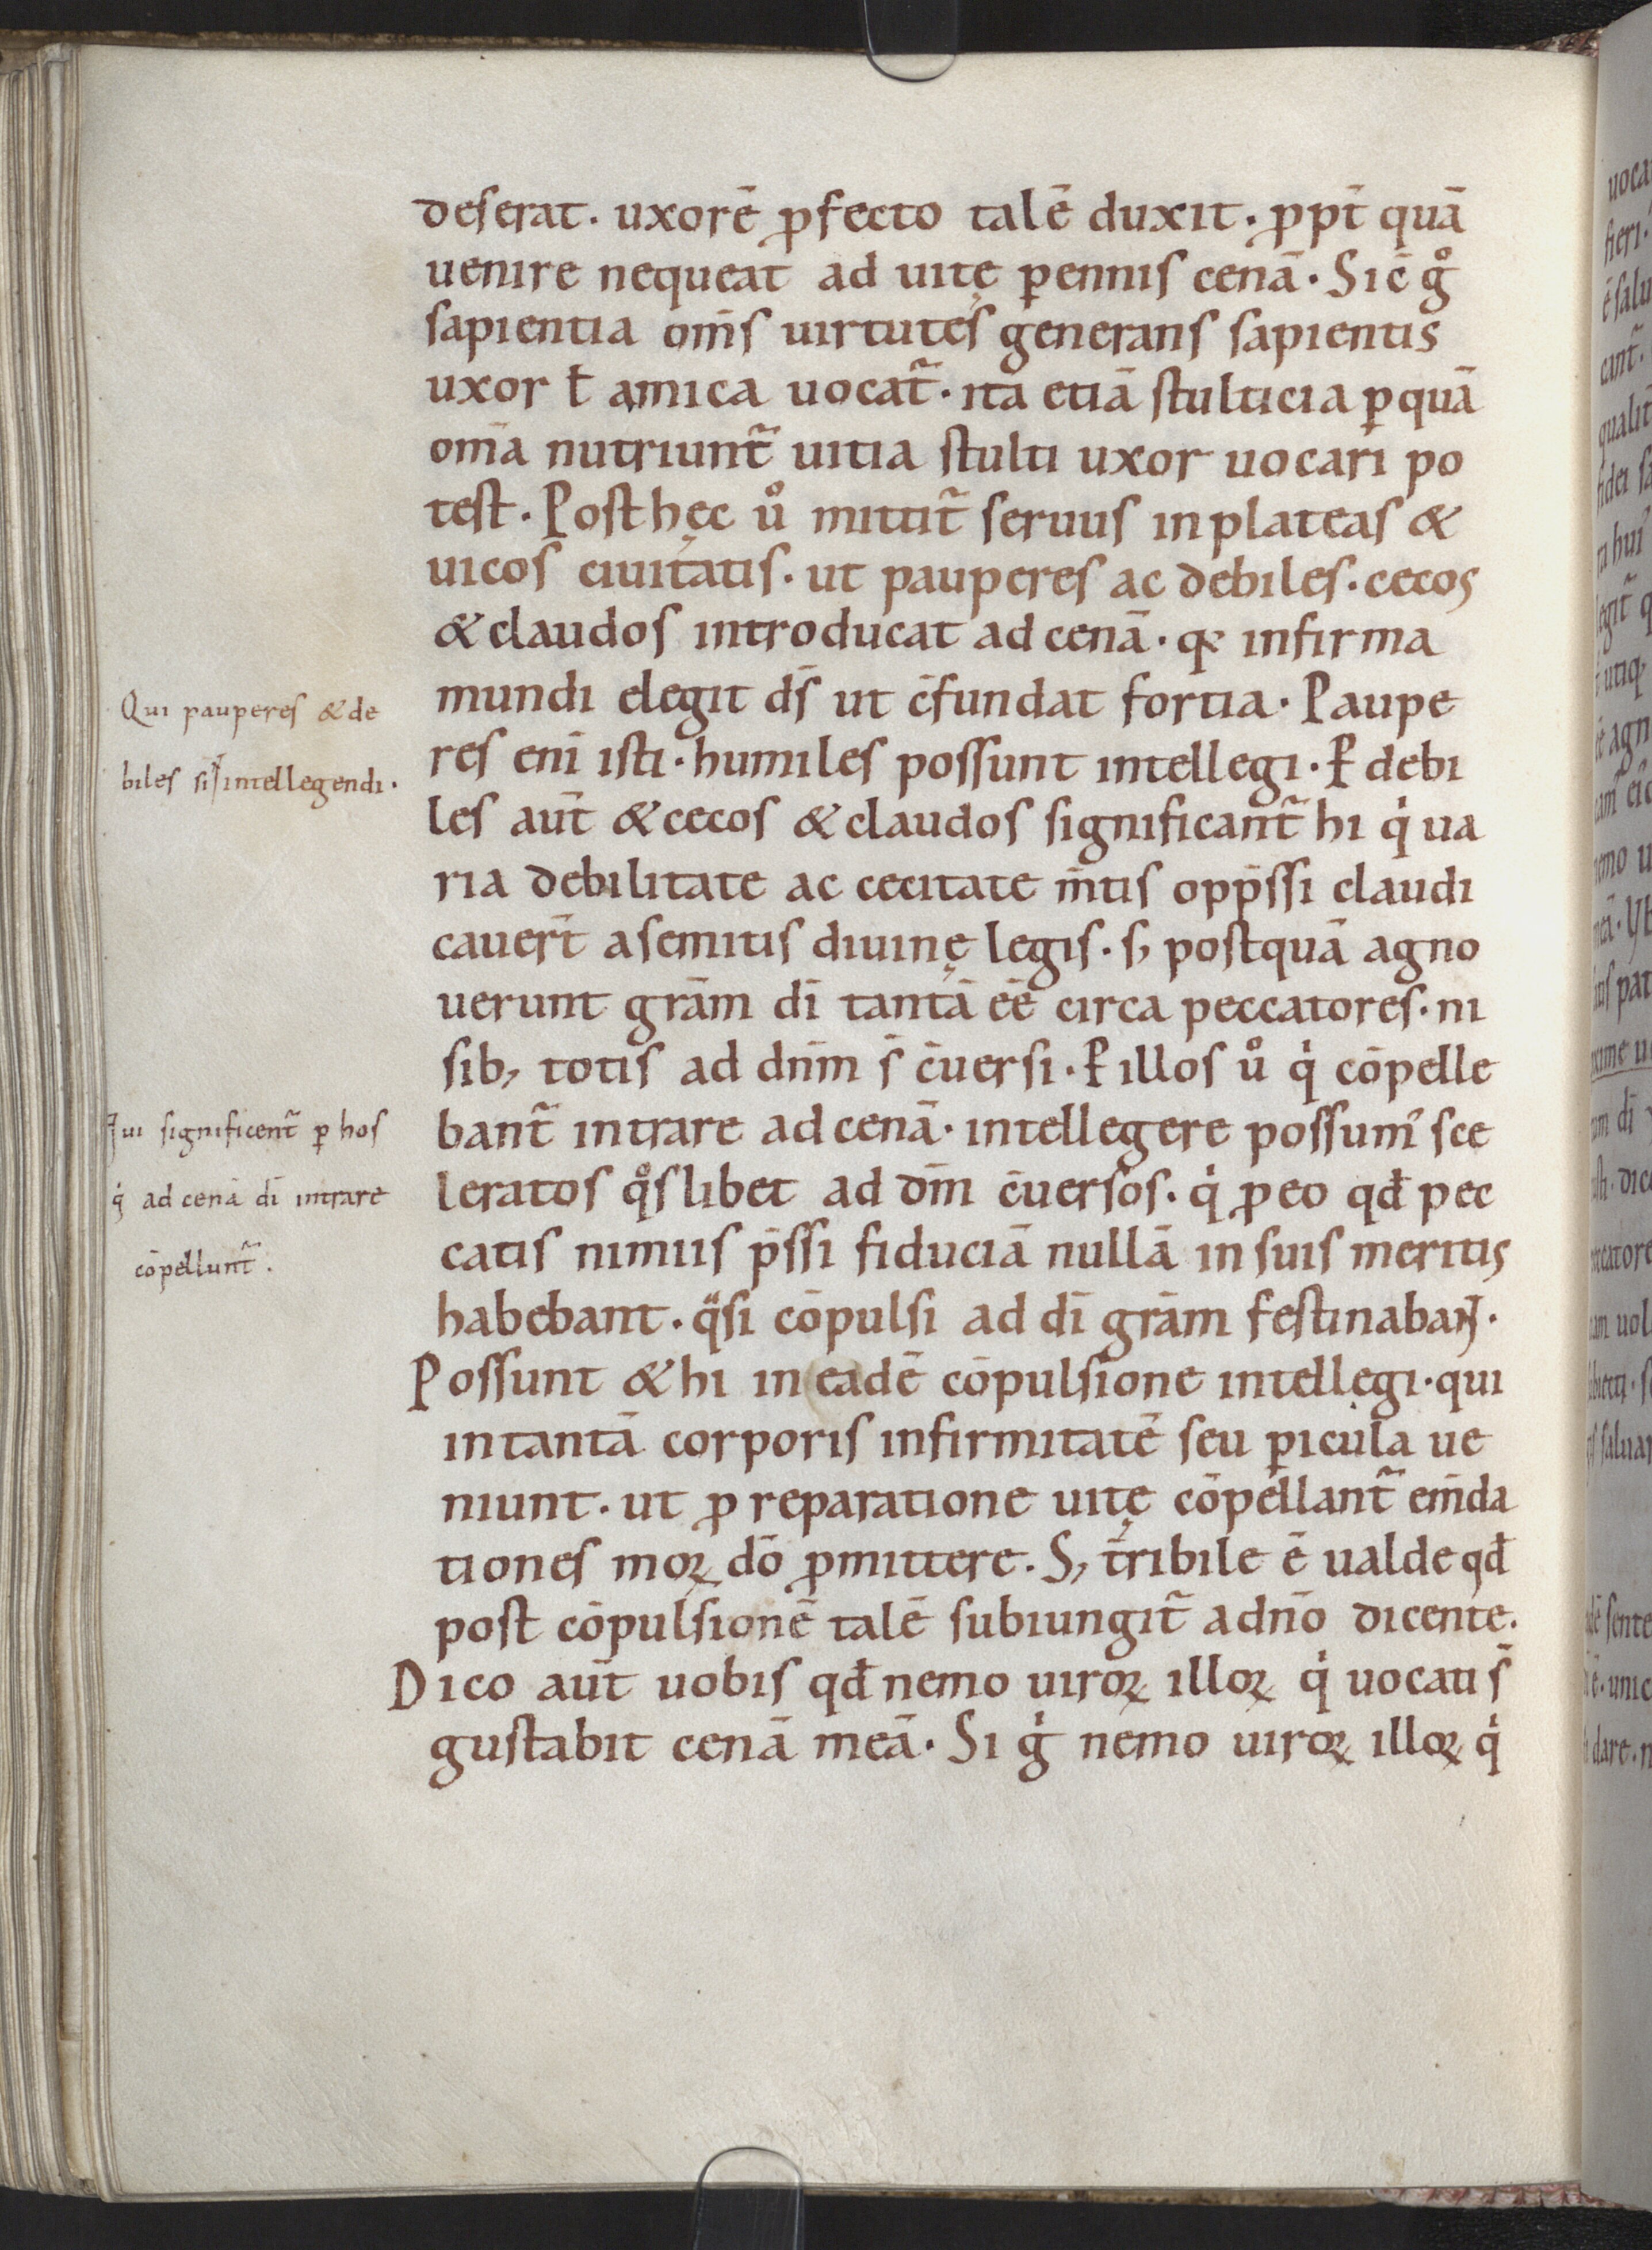 deserat. uxorē ꝓfecto talē duxit. ꝓpt̄ quā
uenire nequeat ad uitę ꝑennis cenā. Sic̄ gͦ
sapientia om̄s uirtutes generans sapientis
uxor ł amica uocat᷑. ita etiā stulticia ꝑquā
om̄a nutriunt᷑ uitia stulti uxor uocari po
test. Post hęc uͦ mittit᷑ seruus in plateas &
uicos ciuitatis. ut pauperes ac debiles. cecos
& claudos introducat ad cenā. qꝛ infirma
mundi elegit ds̄ ut c̄fundat fortia. Paupe
res eni̅ isti. humiles possunt intellegi. Ꝑ debi
les aut̄ & cecos & claudos significant᷑ hi qi ua
ria debilitate ac cecitate m̄tis opp̄ssi claudi
cauer̄t a semitis diuinę legis. s; postquā agno
uerunt grām dī tantā ēē circa peccatores. ni
sib; totis ad dn̄m s̄ c̄uersi. Ꝑ illos uͦ qi cōpelle
bant᷑ intrare ad cenā. intellegere possumꝰ sce
leratos qͦslibet ad dm̄ c̄uersos. qi ꝓ eo qđ pec
catis nimiis p̄ssi fiduciā nullā in suis meritis
habebant. qͣsi cōpulsi ad dī grām festinabant.
Possunt & hi in eadē cōpulsione intellegi. qui
in tantā corporis infirmitatē seu ꝑicula ue
niunt. ut ꝓ reparatione uitę cōpellant᷑ em̄da
tiones moꝝ dō ꝓmittere. S; t̄ribile ē ualde qđ
post cōpulsionē talē subiungit᷑ a dn̄o dicente.
Dico aut̄ uobis qđ nemo uiroꝝ illoꝝ qi uocati s̄
gustabit cenā meā. Si gi nemo uiroꝝ illoꝝ qi
Qui pauperes & de
biles si\nt intellegendi.
Qui significent᷑ ꝑ hos
qi ad cenā dī intrare
cōpellunt᷑.